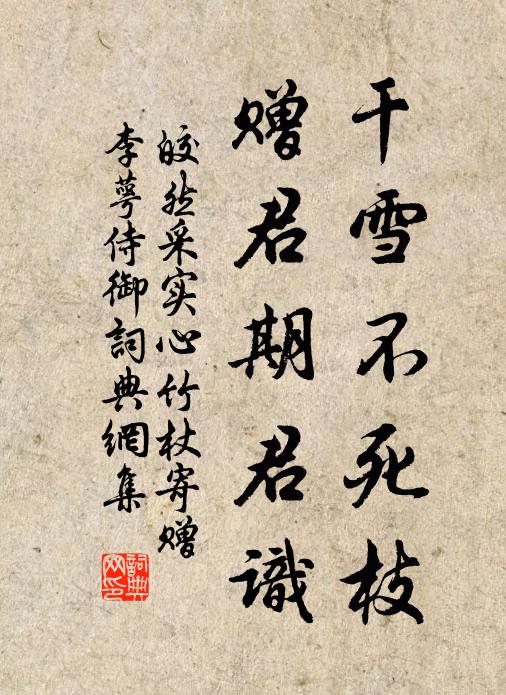 干雪不死枝
赠君期君识
皎然采实心竹杖寄赠
李萼侍御詞典網集
詞典网印